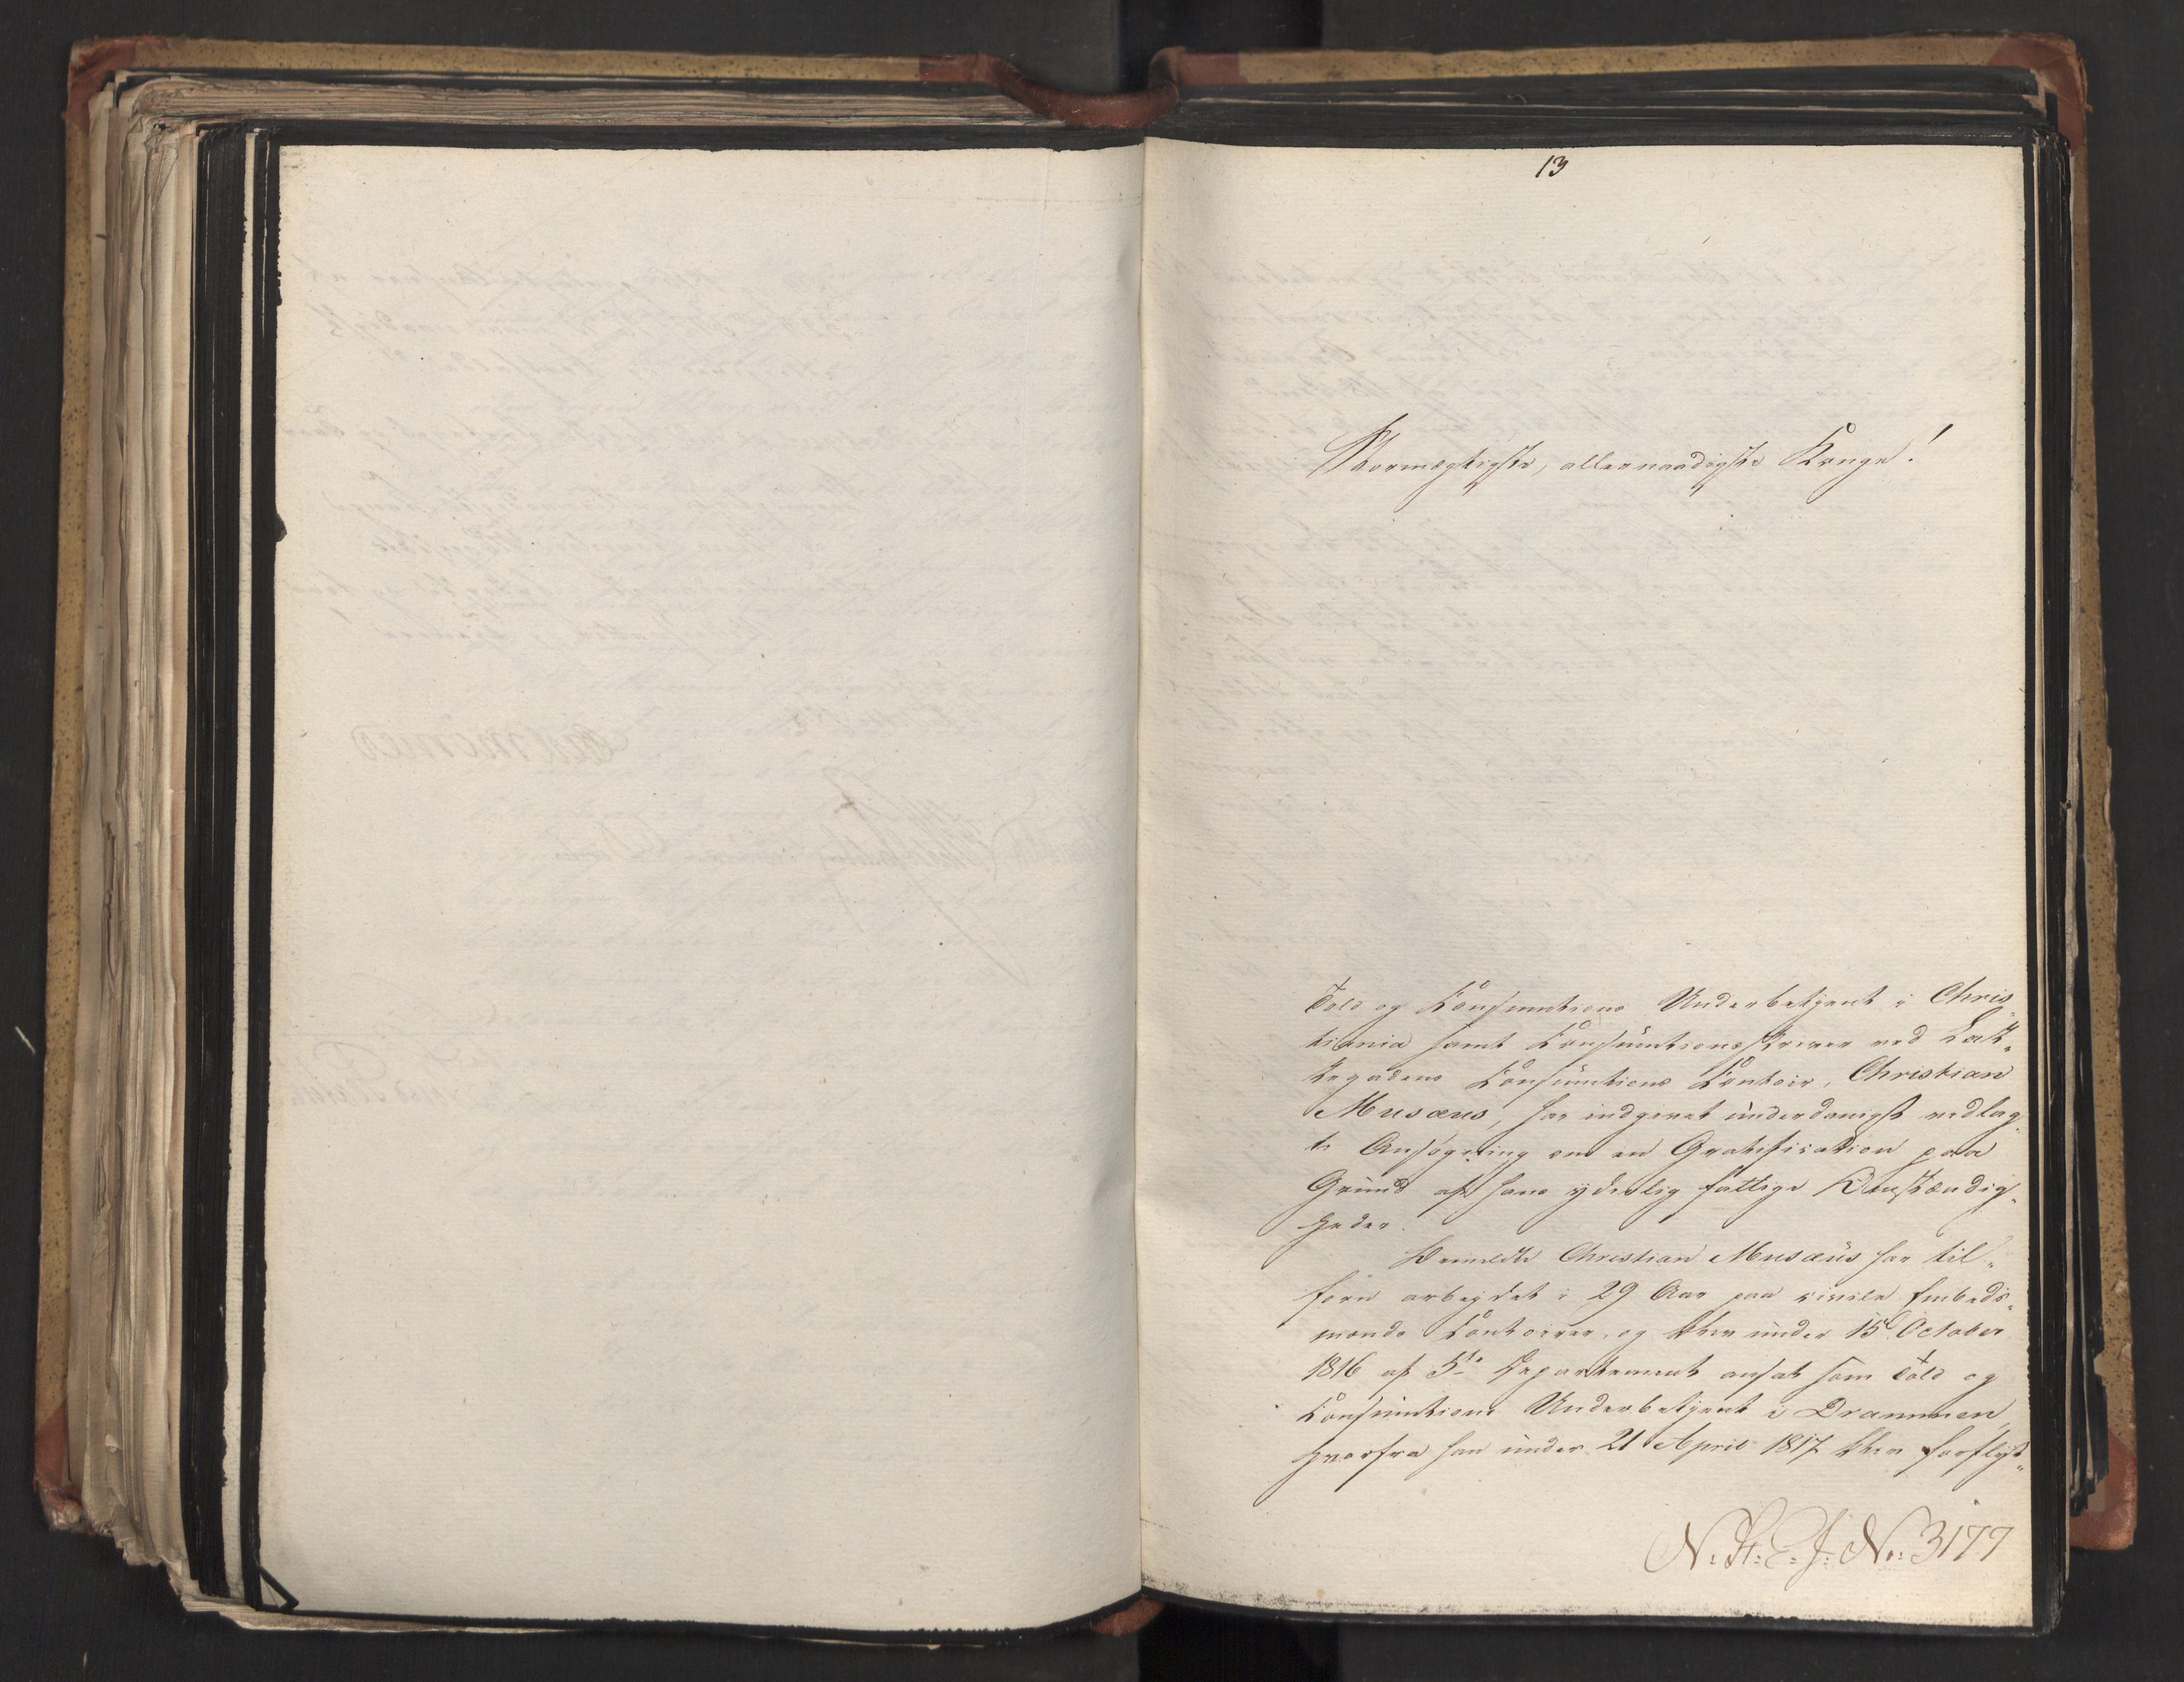 13
Stormægtigste, allernaadigste Konge!
Told og Consumtions Underbetjent i Chris„
tiania samt Consumtionsskriver ved Lak„
kegadens Consumtions Contoir, Christian
Musæus, har indgivet underdanigst vedlag„
te Ansøgning om en Gratification paa
Grund af hans yderlig fattige Omstændig„
heder.
Bemeldte Christian Musæus har til„
forn arbeydet i 29 Aar paa civile Embeds„
mænds Contoirer, og blev under 15de October
1816 af 5te Departement ansat som Told og
Consumtions Underbetjent i Drammen,
hvorfra han under 21 April 1817 blev forflyt„
N. R. S. J. No: 3177